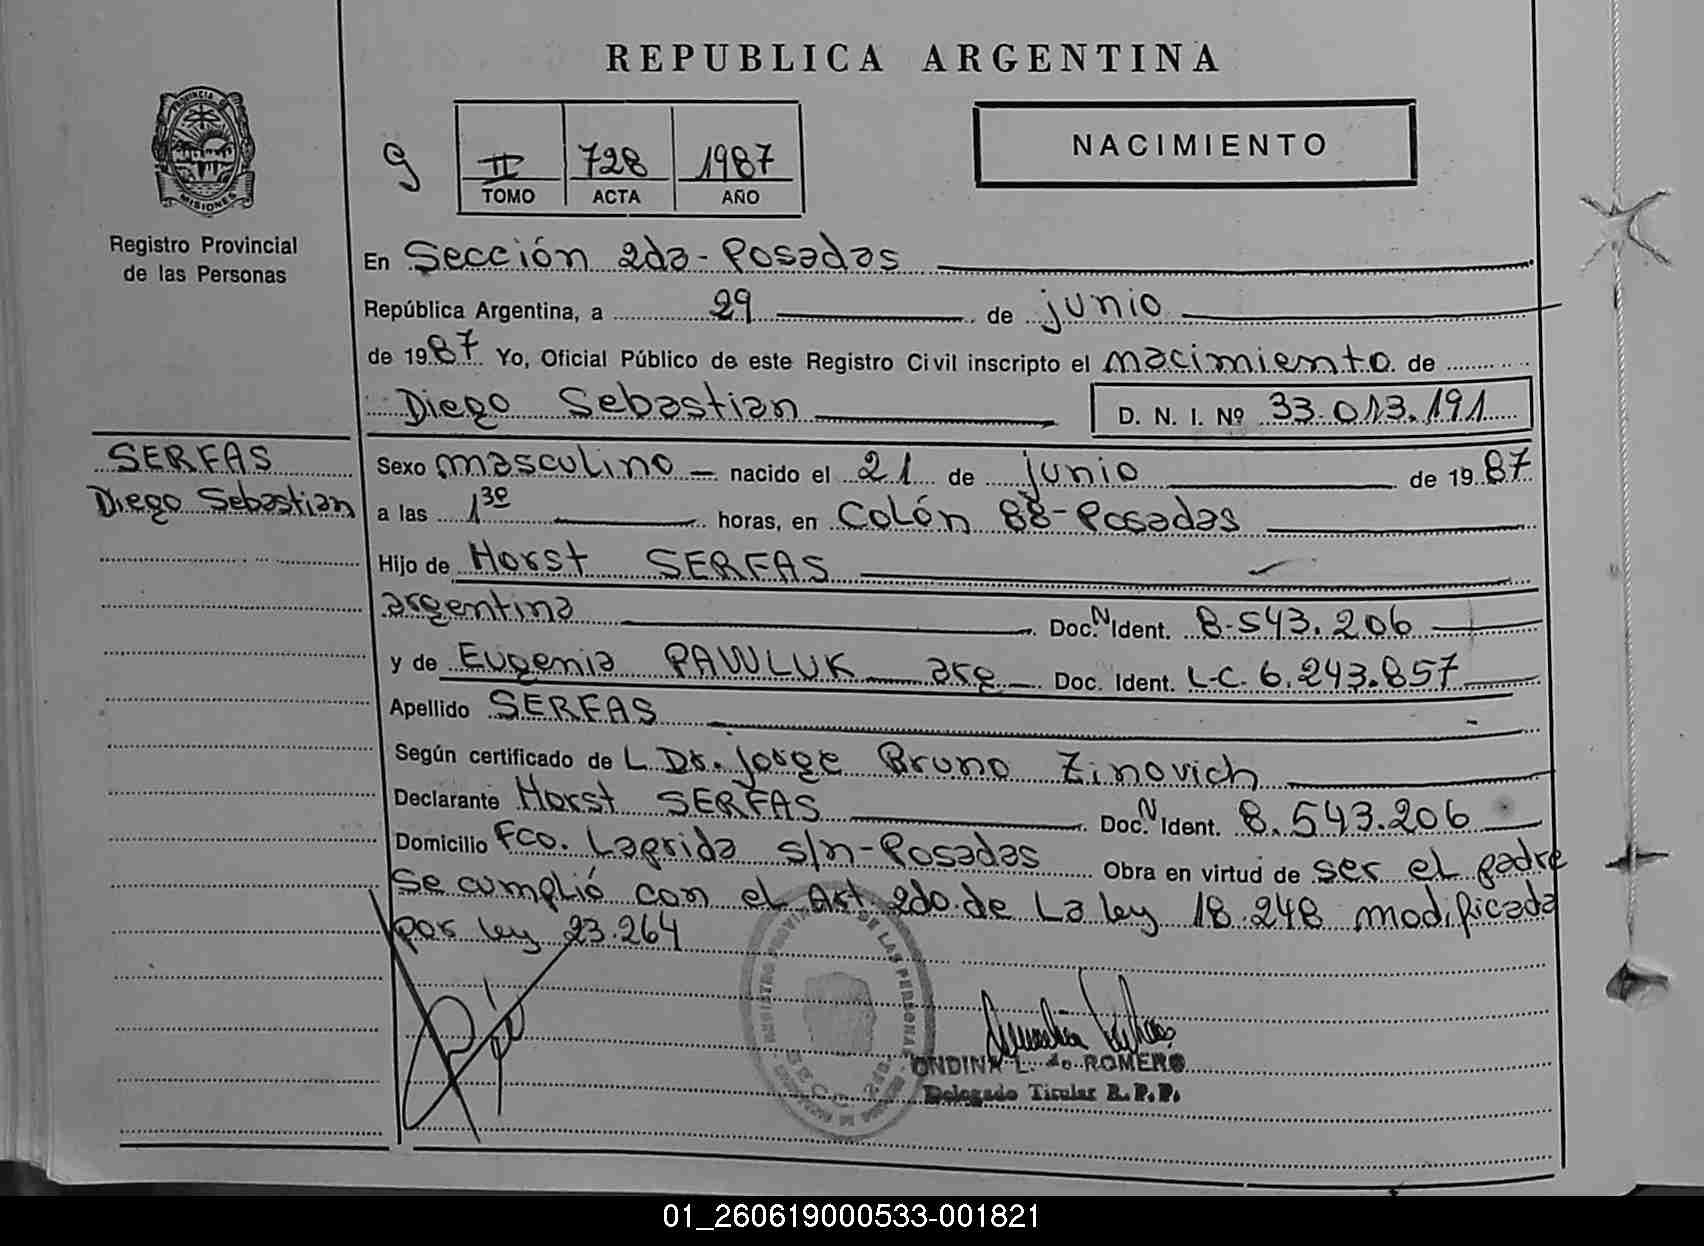 REPUBLICA ARGENTINA
PROVINCIA DE
MISIONES
Registro Provincial
de las Personas
9
II 728 1987
TOMO ACTA AÑO
NACIMIENTO
En Sección 2da - Posadas
República Argentina, a 29 de junio
de 1987 Yo, Oficial Público de este Registro Civil inscripto el nacimiento de
Diego Sebastian D. N. I. Nº 33.013.191
SERFAS
Diego Sebastian
Sexo masculino nacido el 21 de junio de 1987
a las 1³⁰ horas, en Colón 88 - Posadas
Hijo de Horst SERFAS
argentina Doc. N Ident. 8.543.206
y de Eugenia PAWLUK arg Doc. Ident. L.C. 6.243.857
Apellido SERFAS
Según certificado de L Dr. Jorge Bruno Zinovich
Declarante Horst SERFAS Doc. N Ident. 8.543.206
Domicilio Fco. Laprida s/n - Posadas Obra en virtud de ser el padre
Se cumplió con el Art. 2do. de La ley 18.248 modificada
por ley 23.264
REGISTRO PROVINCIAL DE LAS PERSONAS
ONDINA L. de ROMERO
Delegado Titular R. P. P.
01_260619000533-001821